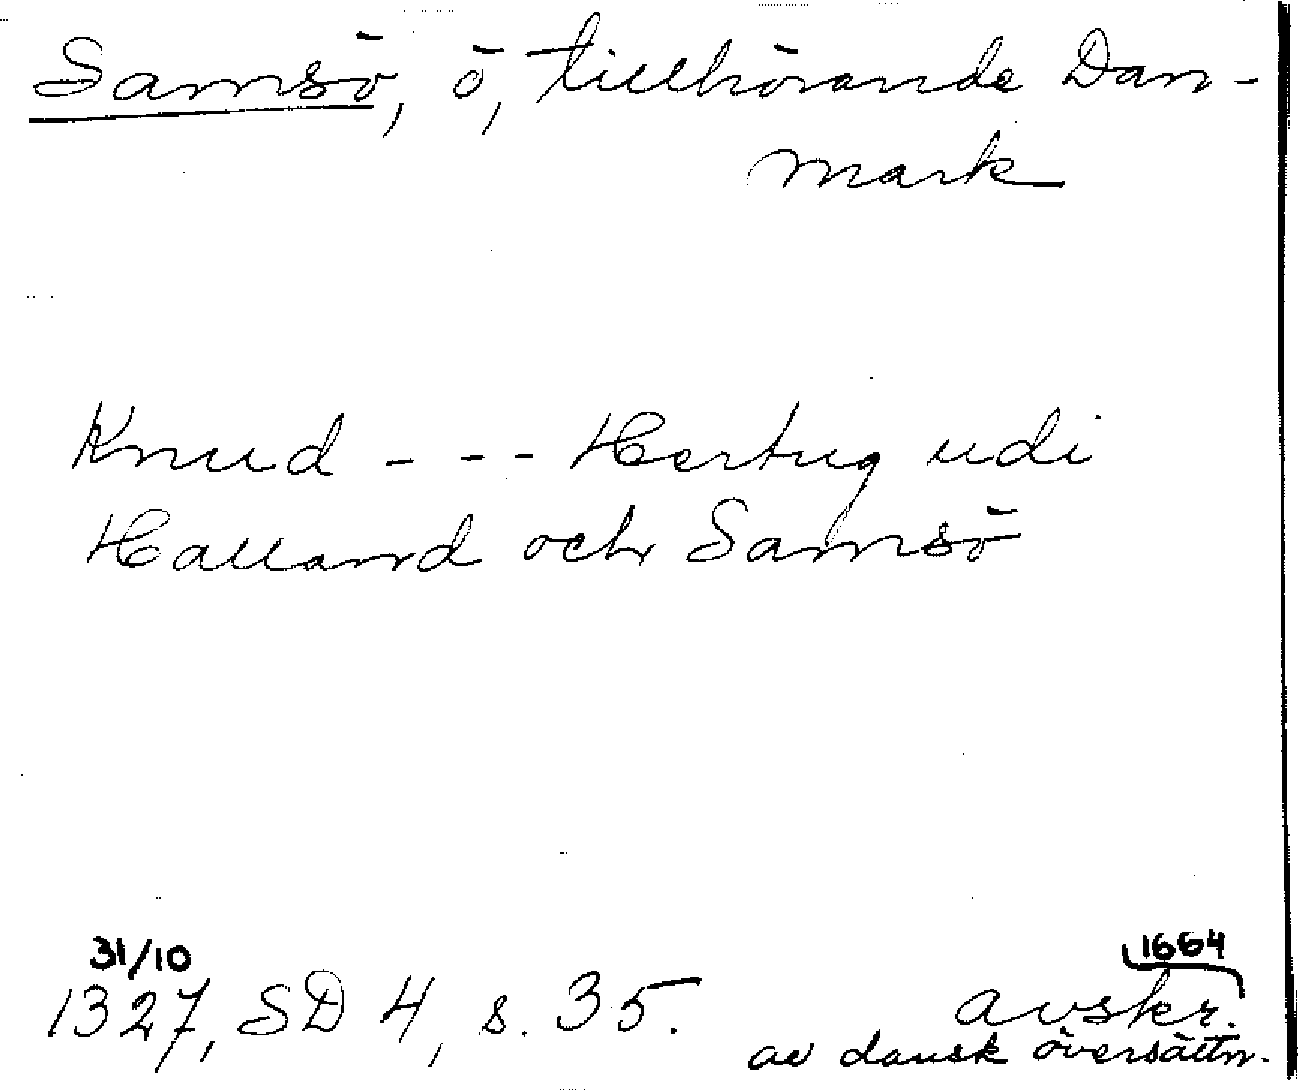 Samsö, ö, tillhörande Dan-
mark
Knud - - - Hertug udi
Halland och Samsö
31/10
1327, SD 4, s. 35.
1664
avskr.
av dansk översättn.